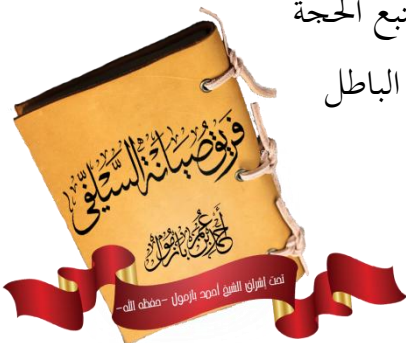 نتبع الحجة
الباطل
فريق صيانة السلفي
أحمد بن عمر بازمول
تحت إشراف الشيخ أحمد بازمول -حفظه الله-